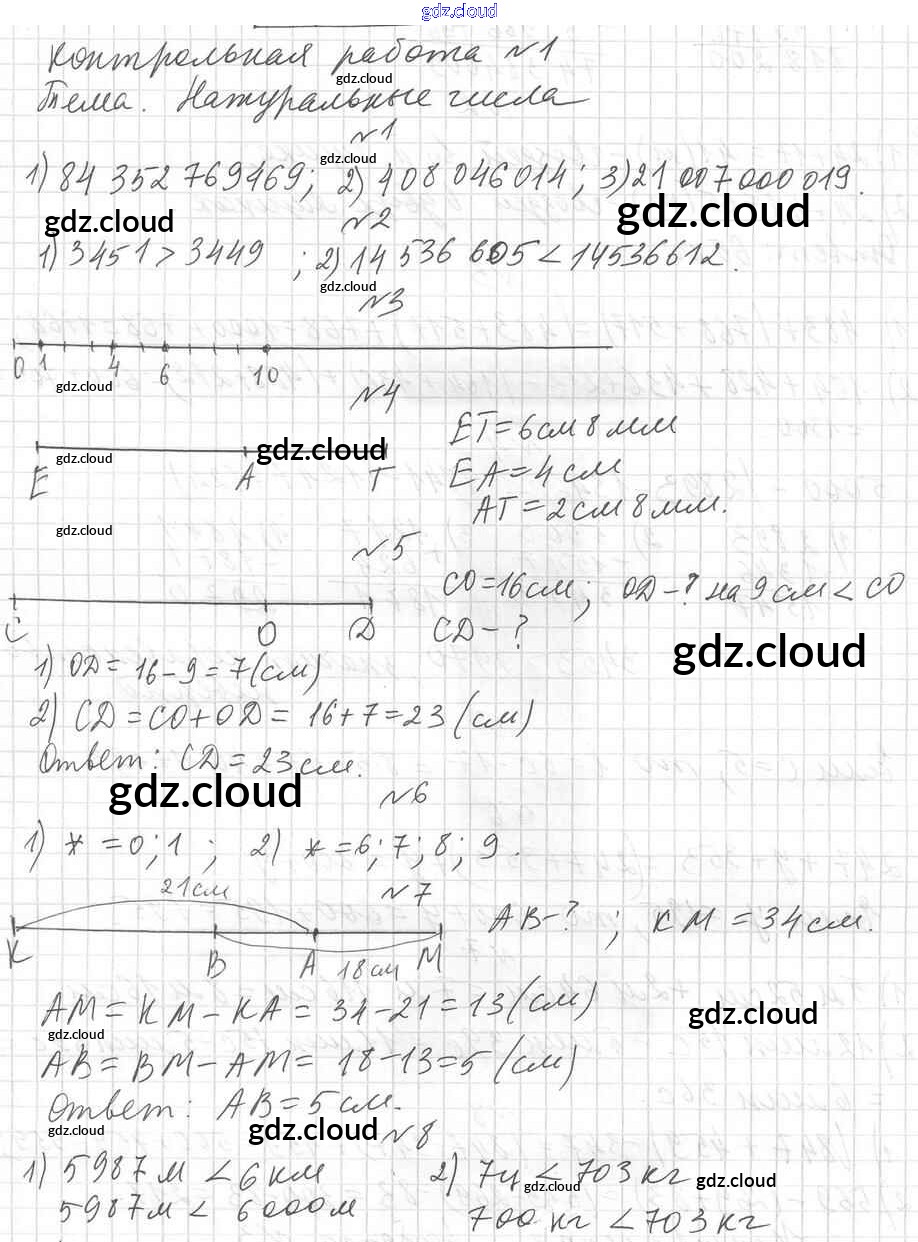 gdz.cloud
Контрольная работа №1
gdz.cloud
Тема. Натуральные числа
№1
gdz.cloud
1) 84 352 769 469; 2) 408 046 014; 3) 21 007 000 019.
gdz.cloud №2 gdz.cloud
1) 3451 > 3449 ; 2) 14 536 605 < 14536612.
gdz.cloud
№3
0 1 4 6 10
gdz.cloud
№4
ET = 6 см 8 мм
gdz.cloud gdz.cloud
E A T EA = 4 см
AT = 2 см 8 мм.
gdz.cloud
№5
CO = 16 см; OD - ? на 9 см < CO
C O D CD - ?
gdz.cloud
1) OD = 16 - 9 = 7 (см)
2) CD = CO + OD = 16 + 7 = 23 (см)
Ответ: CD = 23 см.
gdz.cloud №6
1) * = 0; 1 ; 2) * = 6; 7; 8; 9.
21 см №7
AB - ? ; KM = 34 см.
K B A 18 см M
AM = KM - KA = 34 - 21 = 13 (см)
gdz.cloud gdz.cloud
AB = BM - AM = 18 - 13 = 5 (см)
Ответ: AB = 5 см.
gdz.cloud gdz.cloud №8
1) 5987 м < 6 км 2) 7ц < 703 кг
gdz.cloud gdz.cloud
5987 м < 6000 м 700 кг < 703 кг